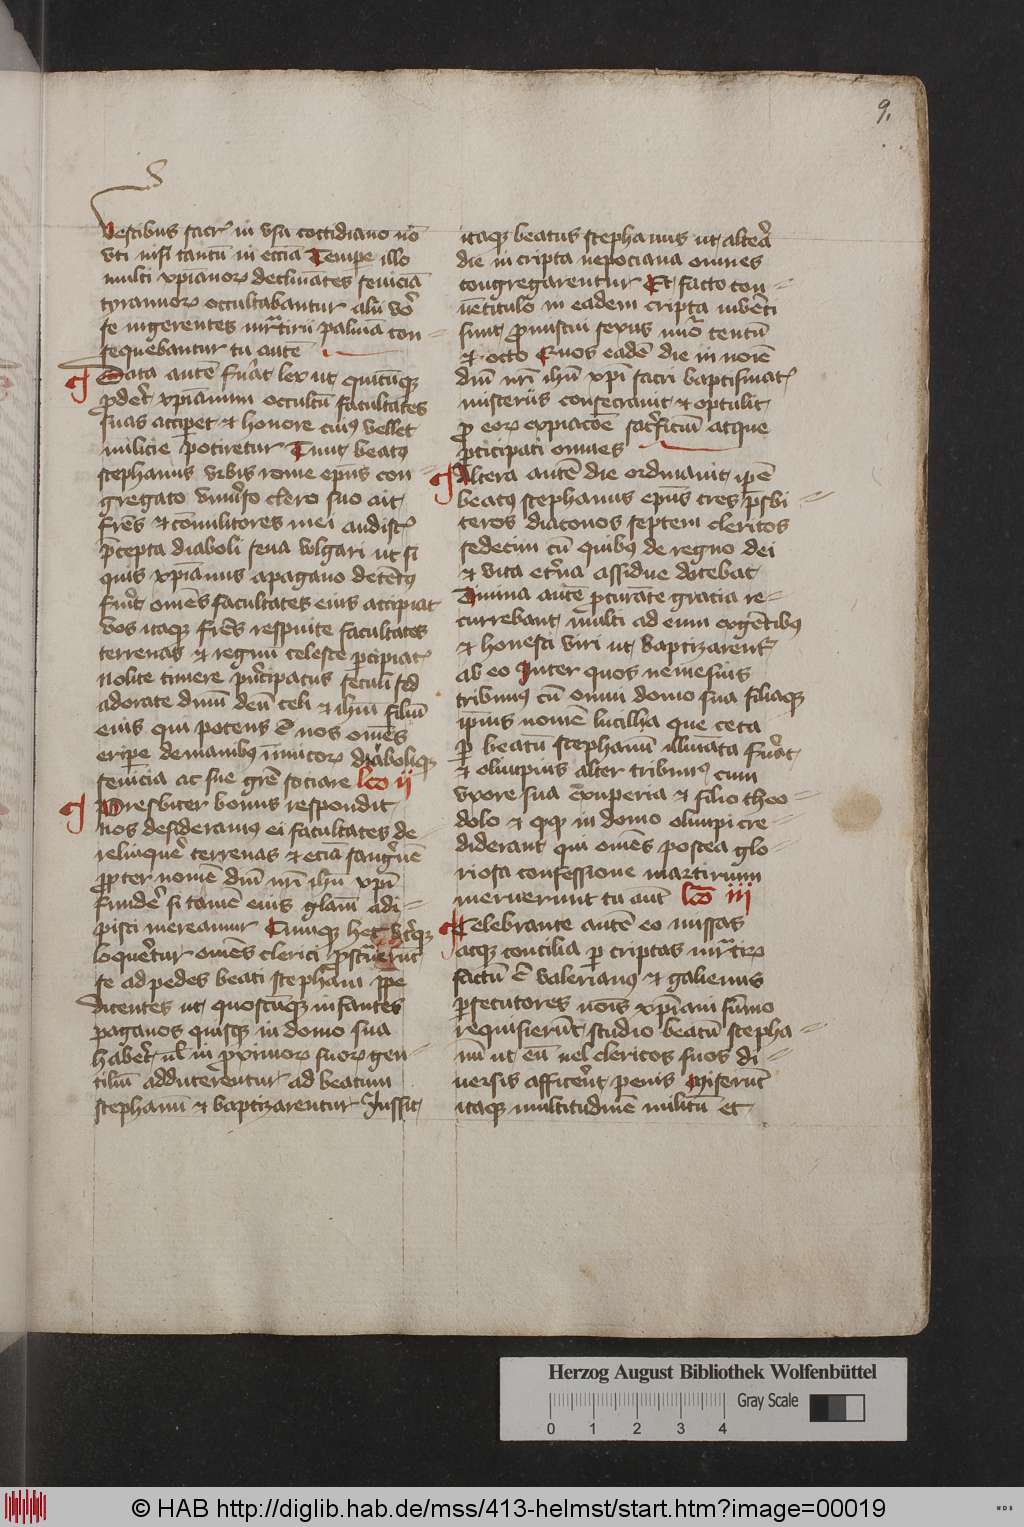 9.
vestibus sacr̄ in vsu cottidiano nō
vti nisi tantū in ecciā Tempe illo
multi xpianoꝝ declinātes seuiciā
tyrannoꝝ occultabantur alii vo̾
se ingerentes mr̄tirii palmā con
sequebantur tu autē
Data autē fu̾at lex ut quicūqꝫ
ꝓde̾t xp̄ianum occultū facultates
suas accip̄et ⁊ honorē cuiꝰ vellet
milicie potiretur Tunc beatꝰ
stephanus vrbis rome ep̄us con
gregato vniu̾so clero suo ait
fr̄es ⁊ cōmilitores mei audistꝭ
p̄cepta diaboli seua wlgari ut si
quis xp̄ianus a pagano detētꝰ
fu̾it om̄es facultates eius accipiat
vos itaqꝫ fr̄es respuite facultates
terrenas ⁊ regnū celeste ꝑcipiatꝭ
nolite timere p̾ncipatus seculi sed
adorate dn̄m deū celi ⁊ ih̄m filiū
eius qui potens ē nos om̄es
eripe de manibꝰ inimicoꝝ diaboliqꝫ
seuicia ac sue gr̄e sociare lc̄o ii
Presbiter bonus respondit
nos desideramꝰ ei facultates de
relinque̾ terrenas ⁊ eciā sang̾nē
ꝓpter nomē dn̄i nr̄i ih̄u xp̄i
funde̾ si tamē eius gl̄am adi
pisci mereamur Cumqꝫ hec vt̾qꝫ
loque̾tur om̄es clerici ꝓstraue̾rūt
se ad pedes beati stephani pp̄e
dicentes ut quoscūqꝫ infantes
paganos quisqꝫ in domo sua
habe̾t ul̄ in ꝓximoꝝ suoꝝ gen
tiliū adduce̾rentur ad beatum
stephanū ⁊ baptizarentur Iussit
itaqꝫ beatus stephanus ut alte̾a
die in cripta nepociana omnes
congregarentur Et facto con
ueticulo in eadem cripta inuēti
sunt ꝓmiscui sexus nūo centū
⁊ octo Quos eadē die in noīe
dn̄i nr̄i ih̄u xp̄i sacri baptismatꝭ
misteriis consecrauit ⁊ optulit
ꝓ eoꝝ expiacōe sac̾ficiū atque
ꝑticipati omnes
Altera autē die ordinauit ip̄e
beatꝰ stephanus ep̄us tres p̄sbi
teros diaconos septem clericos
sedecim cū quibꝰ de regno dei
⁊ vita et̾na assidue docebat
Diuina autē ꝓcurāte gracia re
currebant multi ad eum exgētibꝰ
⁊ honesti viri ut baptizarentꝰ
ab eo Inter quos nemesius
tribunꝰ cū omni domo sua filiaqꝫ
ip̄ius nomē lucillia que ceca
ꝑ beatū stephanū illuīata fu̾at
⁊ olimpius alter tribunꝰ cum
vxore sua exuperia ⁊ filio theo
dolo ⁊ qqꝫ in domo olimpi cre
diderant qui om̄es postea glo
riosa confessione martirium
meruerunt tu aut̄ lc̄o iii
Celebrante autē eo missas
atqꝫ concilia ꝑ criptas mr̄tirꝝ
factū ē valerianꝰ ⁊ galienus
ꝑsecutores nōis xp̄iani sūmo
requisierūt studio beatū stepha
nū ut eū uel clericos suos di
uersis affice̾nt penis Miserūt
itaqꝫ multitudinē militū et
Herzog August Bibliothek Wolfenbüttel
Gray Scale
0 1 2 3 4
© HAB http://diglib.hab.de/mss/413-helmst/start.htm?image=00019